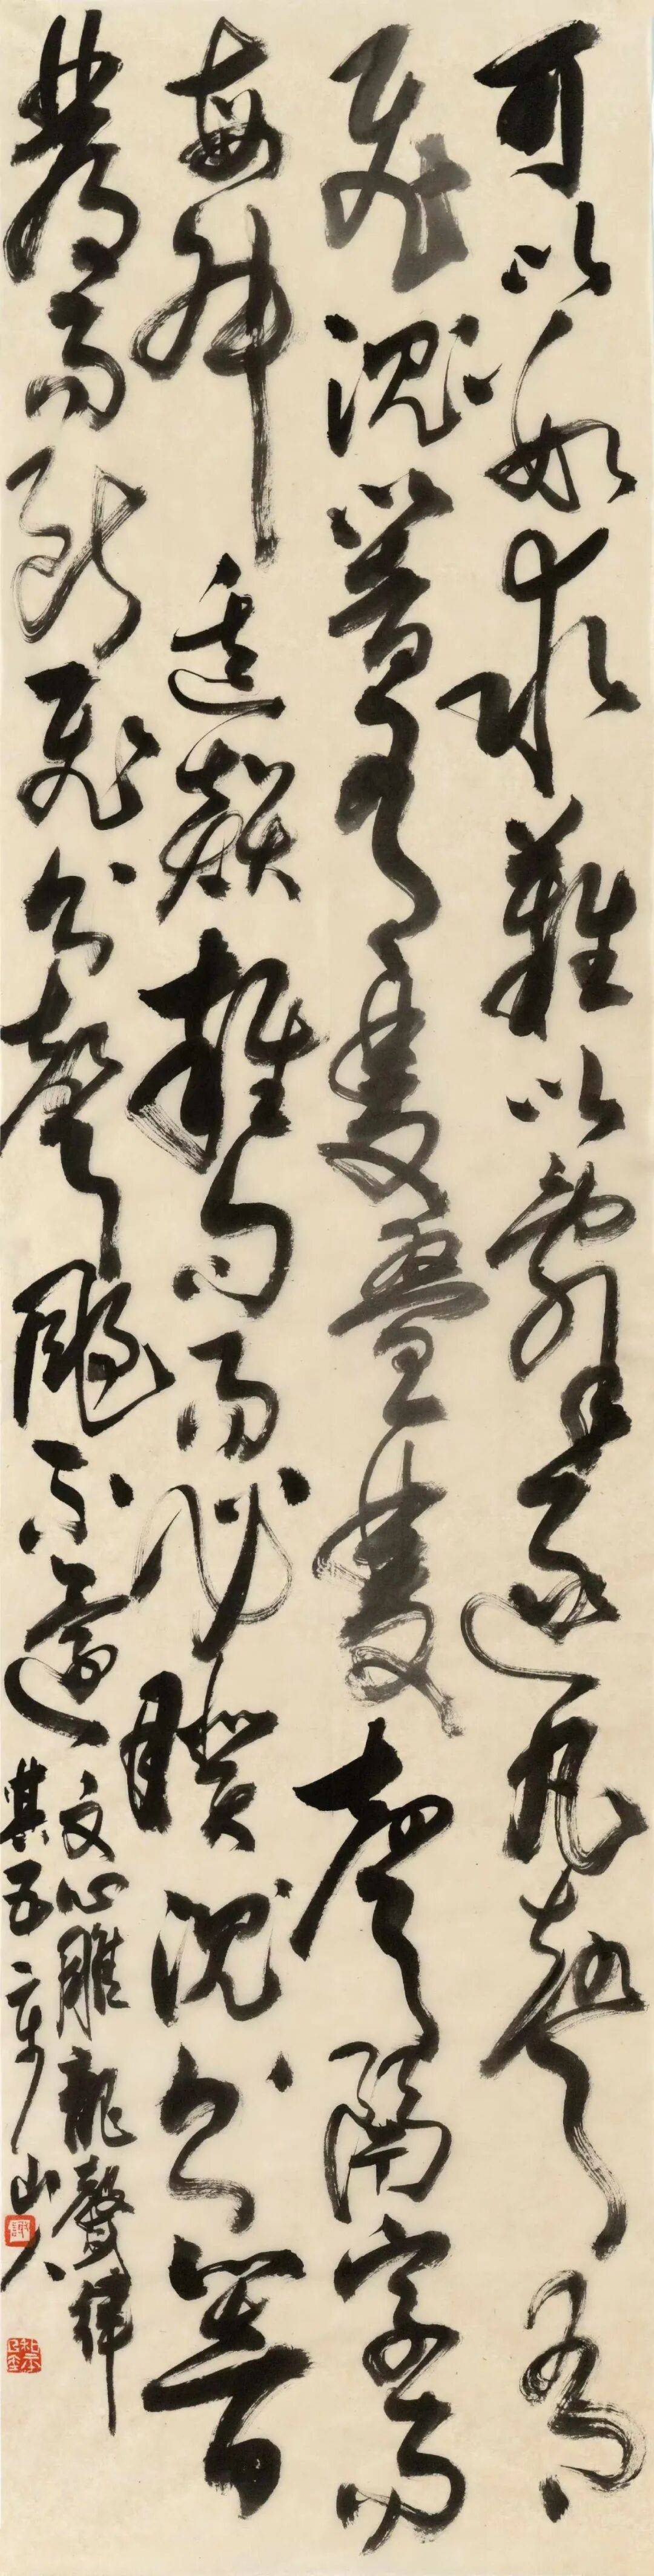 可以數求難以辭逐凡聲有
飛沈響有雙疊雙聲隔字而
每舛迭韻雜句而必睽沈則響
發而斷飛則聲颺不還
文心雕龍聲律
其五 山人